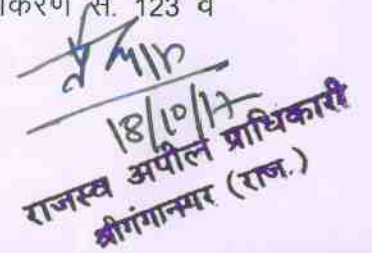 करण सं. 123 व
18/10/17
राजस्व अपील प्राधिकारी
श्रीगंगानगर (राज.)